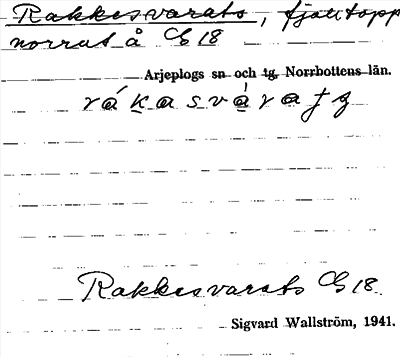 Rakkesvarats, fjälltopp
norrut å C§ 18
Arjeplogs sn och tg, Norrbottens län.
rákasváratj
Rakkesvarats C§ 18
Sigvard Wallström, 1941.